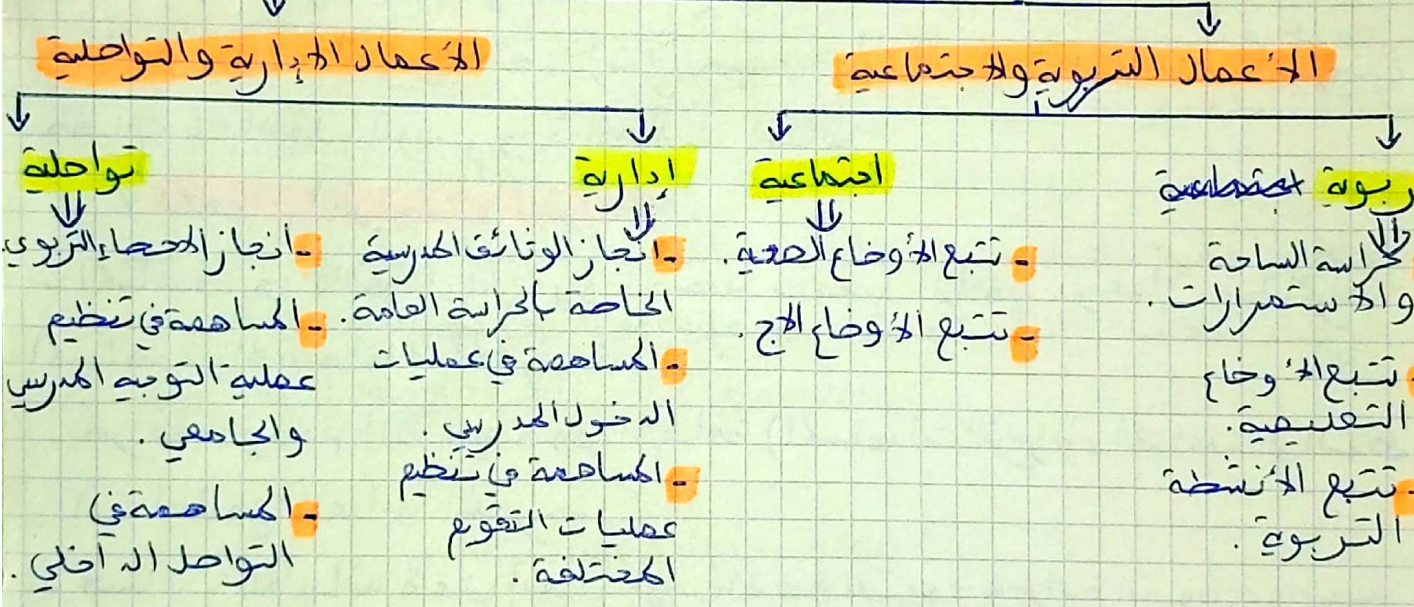 الأعمال التربوية والاجتماعية
الأعمال الإدارية والتواصلية
ربوية اجتماعية
حراسة الساحة
والاستمرارات.
تتبع الأوضاع
التعليمية.
- تتبع الأنشطة
التربوية.
اجتماعية
- تتبع الأوضاع الصحية.
- تتبع الأوضاع الاج.
إدارية
- انجاز الوثائق المدرسية
الخاصة بالحراسة العامة.
- المساهمة في عمليات
الدخول المدرسي.
- المساهمة في تنظيم
عمليات التقويم
المختلفة.
تواصلية
- انجاز الاحصاء التربوي
- المساهمة في تنظيم
عملية التوجيه المدرسي
والجامعي.
- المساهمة في
التواصل الداخلي.